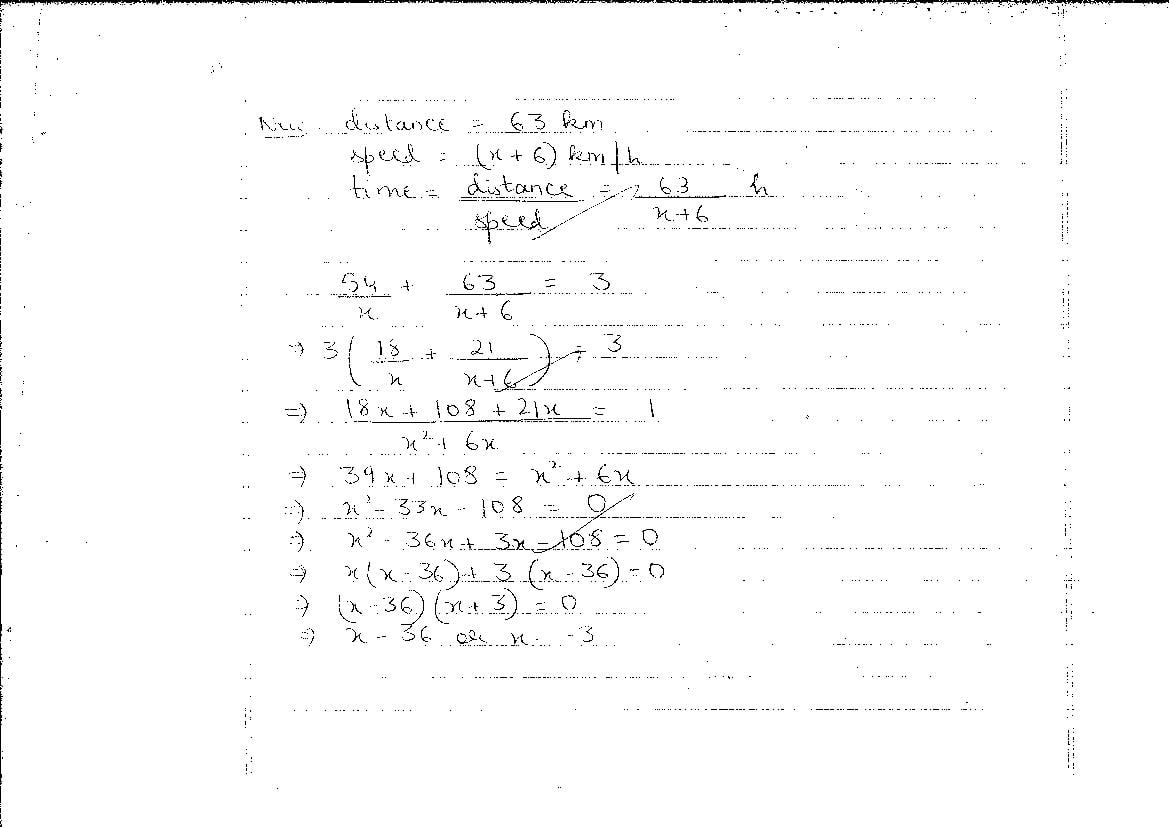 New distance = 63 km
speed = (x + 6) km/h
time = distance/speed = 63/(x+6) h
54/x + 63/(x+6) = 3
⇒ 3(18/x + 21/(x+6)) = 3
⇒ (18x + 108 + 21x)/(x² + 6x) = 1
⇒ 39x + 108 = x² + 6x
⇒ x² - 33x - 108 = 0
⇒ x² - 36x + 3x - 108 = 0
⇒ x(x - 36) + 3(x - 36) = 0
⇒ (x - 36)(x + 3) = 0
⇒ x = 36 or x = -3